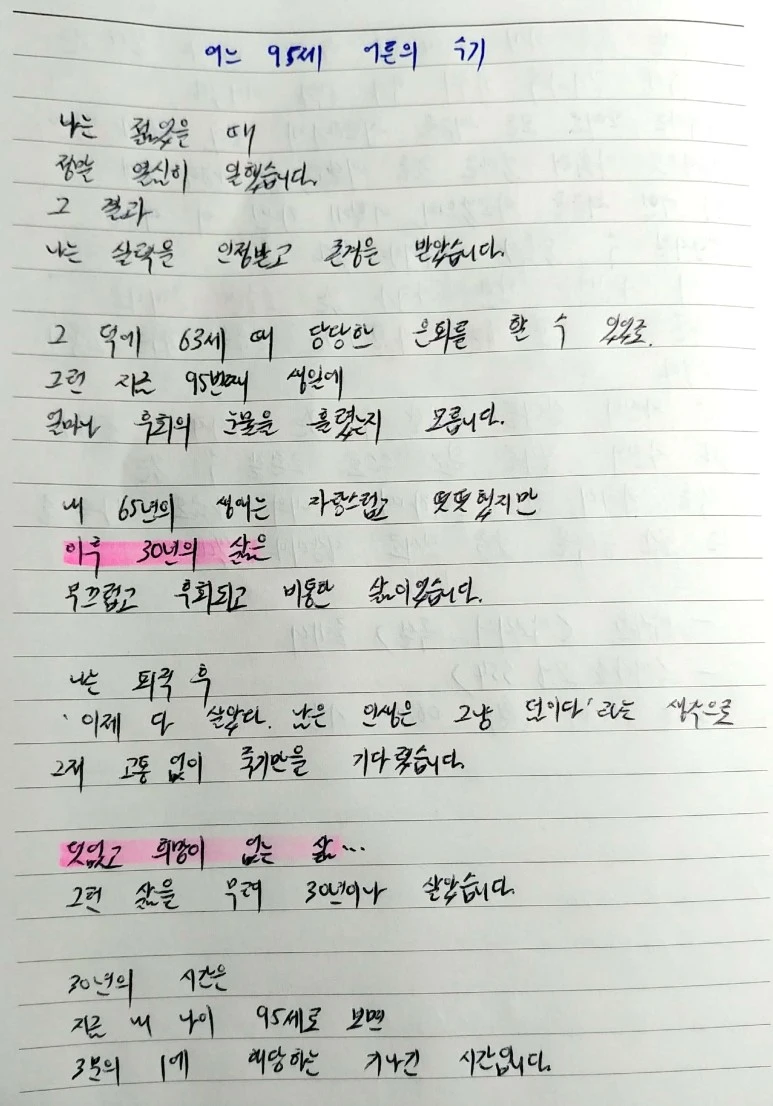 어느 95세 어른의 수기
나는 젊었을 때
정말 열심히 일했습니다.
그 결과
나는 실력을 인정받고 존경을 받았습니다.
그 덕에 63세 때 당당한 은퇴를 할 수 있었죠.
그런 지금 95번째 생일에
얼마나 후회의 눈물을 흘렸는지 모릅니다.
내 65년의 생애는 자랑스럽고 떳떳했지만
이후 30년의 삶은
부끄럽고 후회되고 비통한 삶이었습니다.
나는 퇴직 후
'이제 다 살았다. 남은 인생은 그냥 덤이다'라는 생각으로
그저 고통 없이 죽기만을 기다렸습니다.
덧없고 희망이 없는 삶...
그런 삶을 무려 30년이나 살았습니다.
30년의 시간은
지금 내 나이 95세로 보면
3분의 1에 해당하는 기나긴 시간입니다.